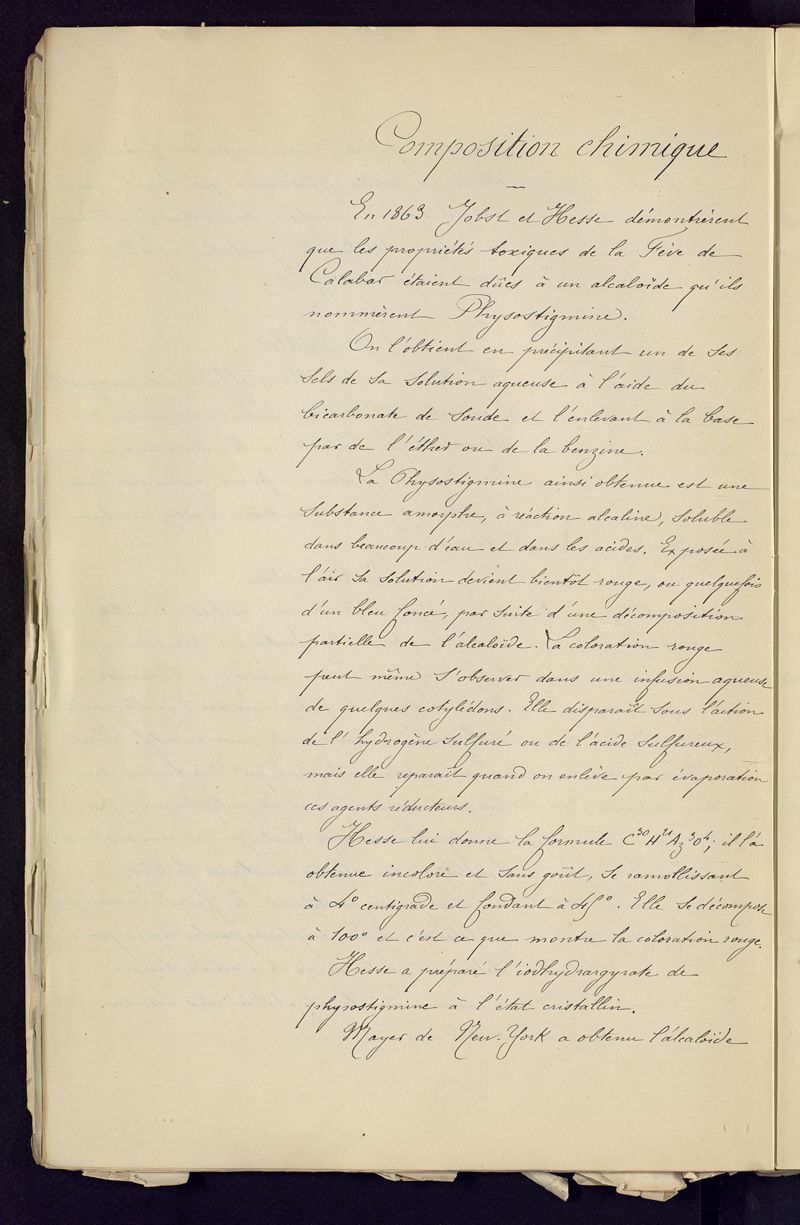 Composition chimique
En 1863 Jobst et Hesse démontrèrent
que les propriétés toxiques de la Fève de
Calabar étaient dûes à un alcaloïde qu'ils
nommèrent Physostigmine.
On l'obtient en précipitant un de ses
sels de sa solution aqueuse à l'aide du
bicarbonate de soude et l'enlevant à la base
par de l'éther ou de la benzine.
La Physostigmine ainsi obtenue est une
substance amorphe, à réaction alcaline, soluble
dans beaucoup d'eau et dans les acides. Exposée à
l'air sa solution devient bientôt rouge, ou quelquefois
d'un bleu foncé, par suite d'une décomposition
partielle de l'alcaloïde. La coloration rouge
peut même s'observer dans une infusion aqueuse
de quelques cotylédons. Elle disparaît sous l'action
de l'hydrogène sulfuré ou de l'acide sulfureux,
mais elle reparaît quand on enlève par évaporation
ces agents réducteurs.
Hesse lui donne la formule C³⁰H²¹Az³O⁴; il l'a
obtenue incolore et sans goût, se ramollissant
à 4° centigrade et fondant à 45°. Elle se décompose
à 100° et c'est ce que montre la coloration rouge.
Hesse a préparé l'iodhydrargyrate de
physostigmine à l'état cristallin.
Mayer de New-York a obtenu l'alcaloïde